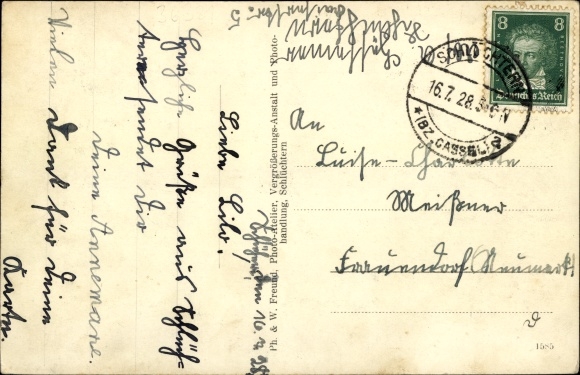 Schlüchtern
16.7.28
Liebe Lilo!
Herzliche Grüße aus Schlüch-
tern sendet Dir
Deine Annemarie.
Vielen Dank für Deine
Karte.
Ph. & W. Freund, Photo-Atelier, Vergrößerungs-Anstalt und Photo-
handlung, Schlüchtern
8 8
Deutsches Reich
SCHLÜCHTERN
16.7.28.
*(BZ. CASSEL)
An
Luise-Charlotte
Meißner
Frauendorf Neumark
1585